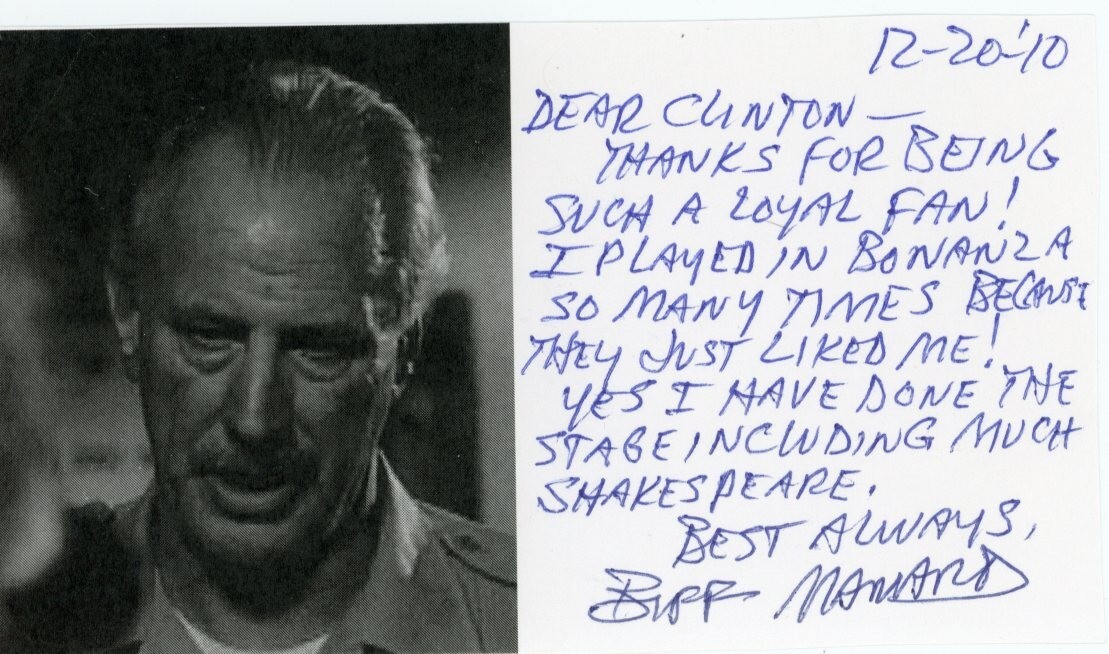 12-20-'10
DEAR CLINTON —
THANKS FOR BEING
SUCH A LOYAL FAN!
I PLAYED IN BONANZA
SO MANY TIMES BECAUSE
THEY JUST LIKED ME!
YES I HAVE DONE THE
STAGE INCLUDING MUCH
SHAKESPEARE.
BEST ALWAYS,
BIFF MANARD